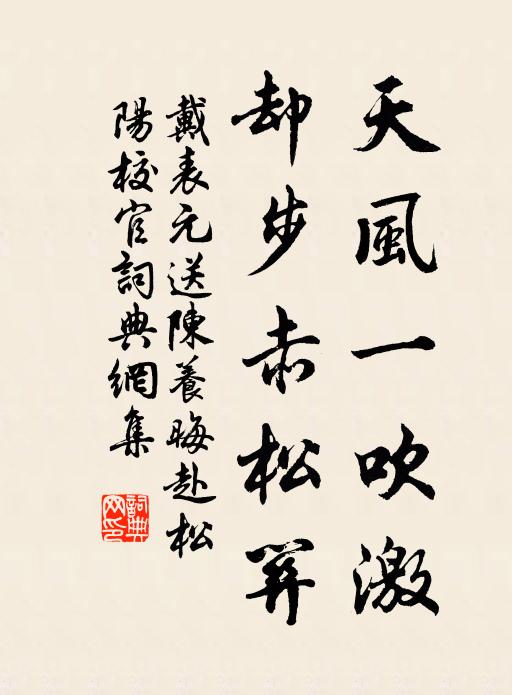 天風一吹激
却步赤松筭
戴表元送陳養晦赴松
陽校官詞典網集
詞典網印